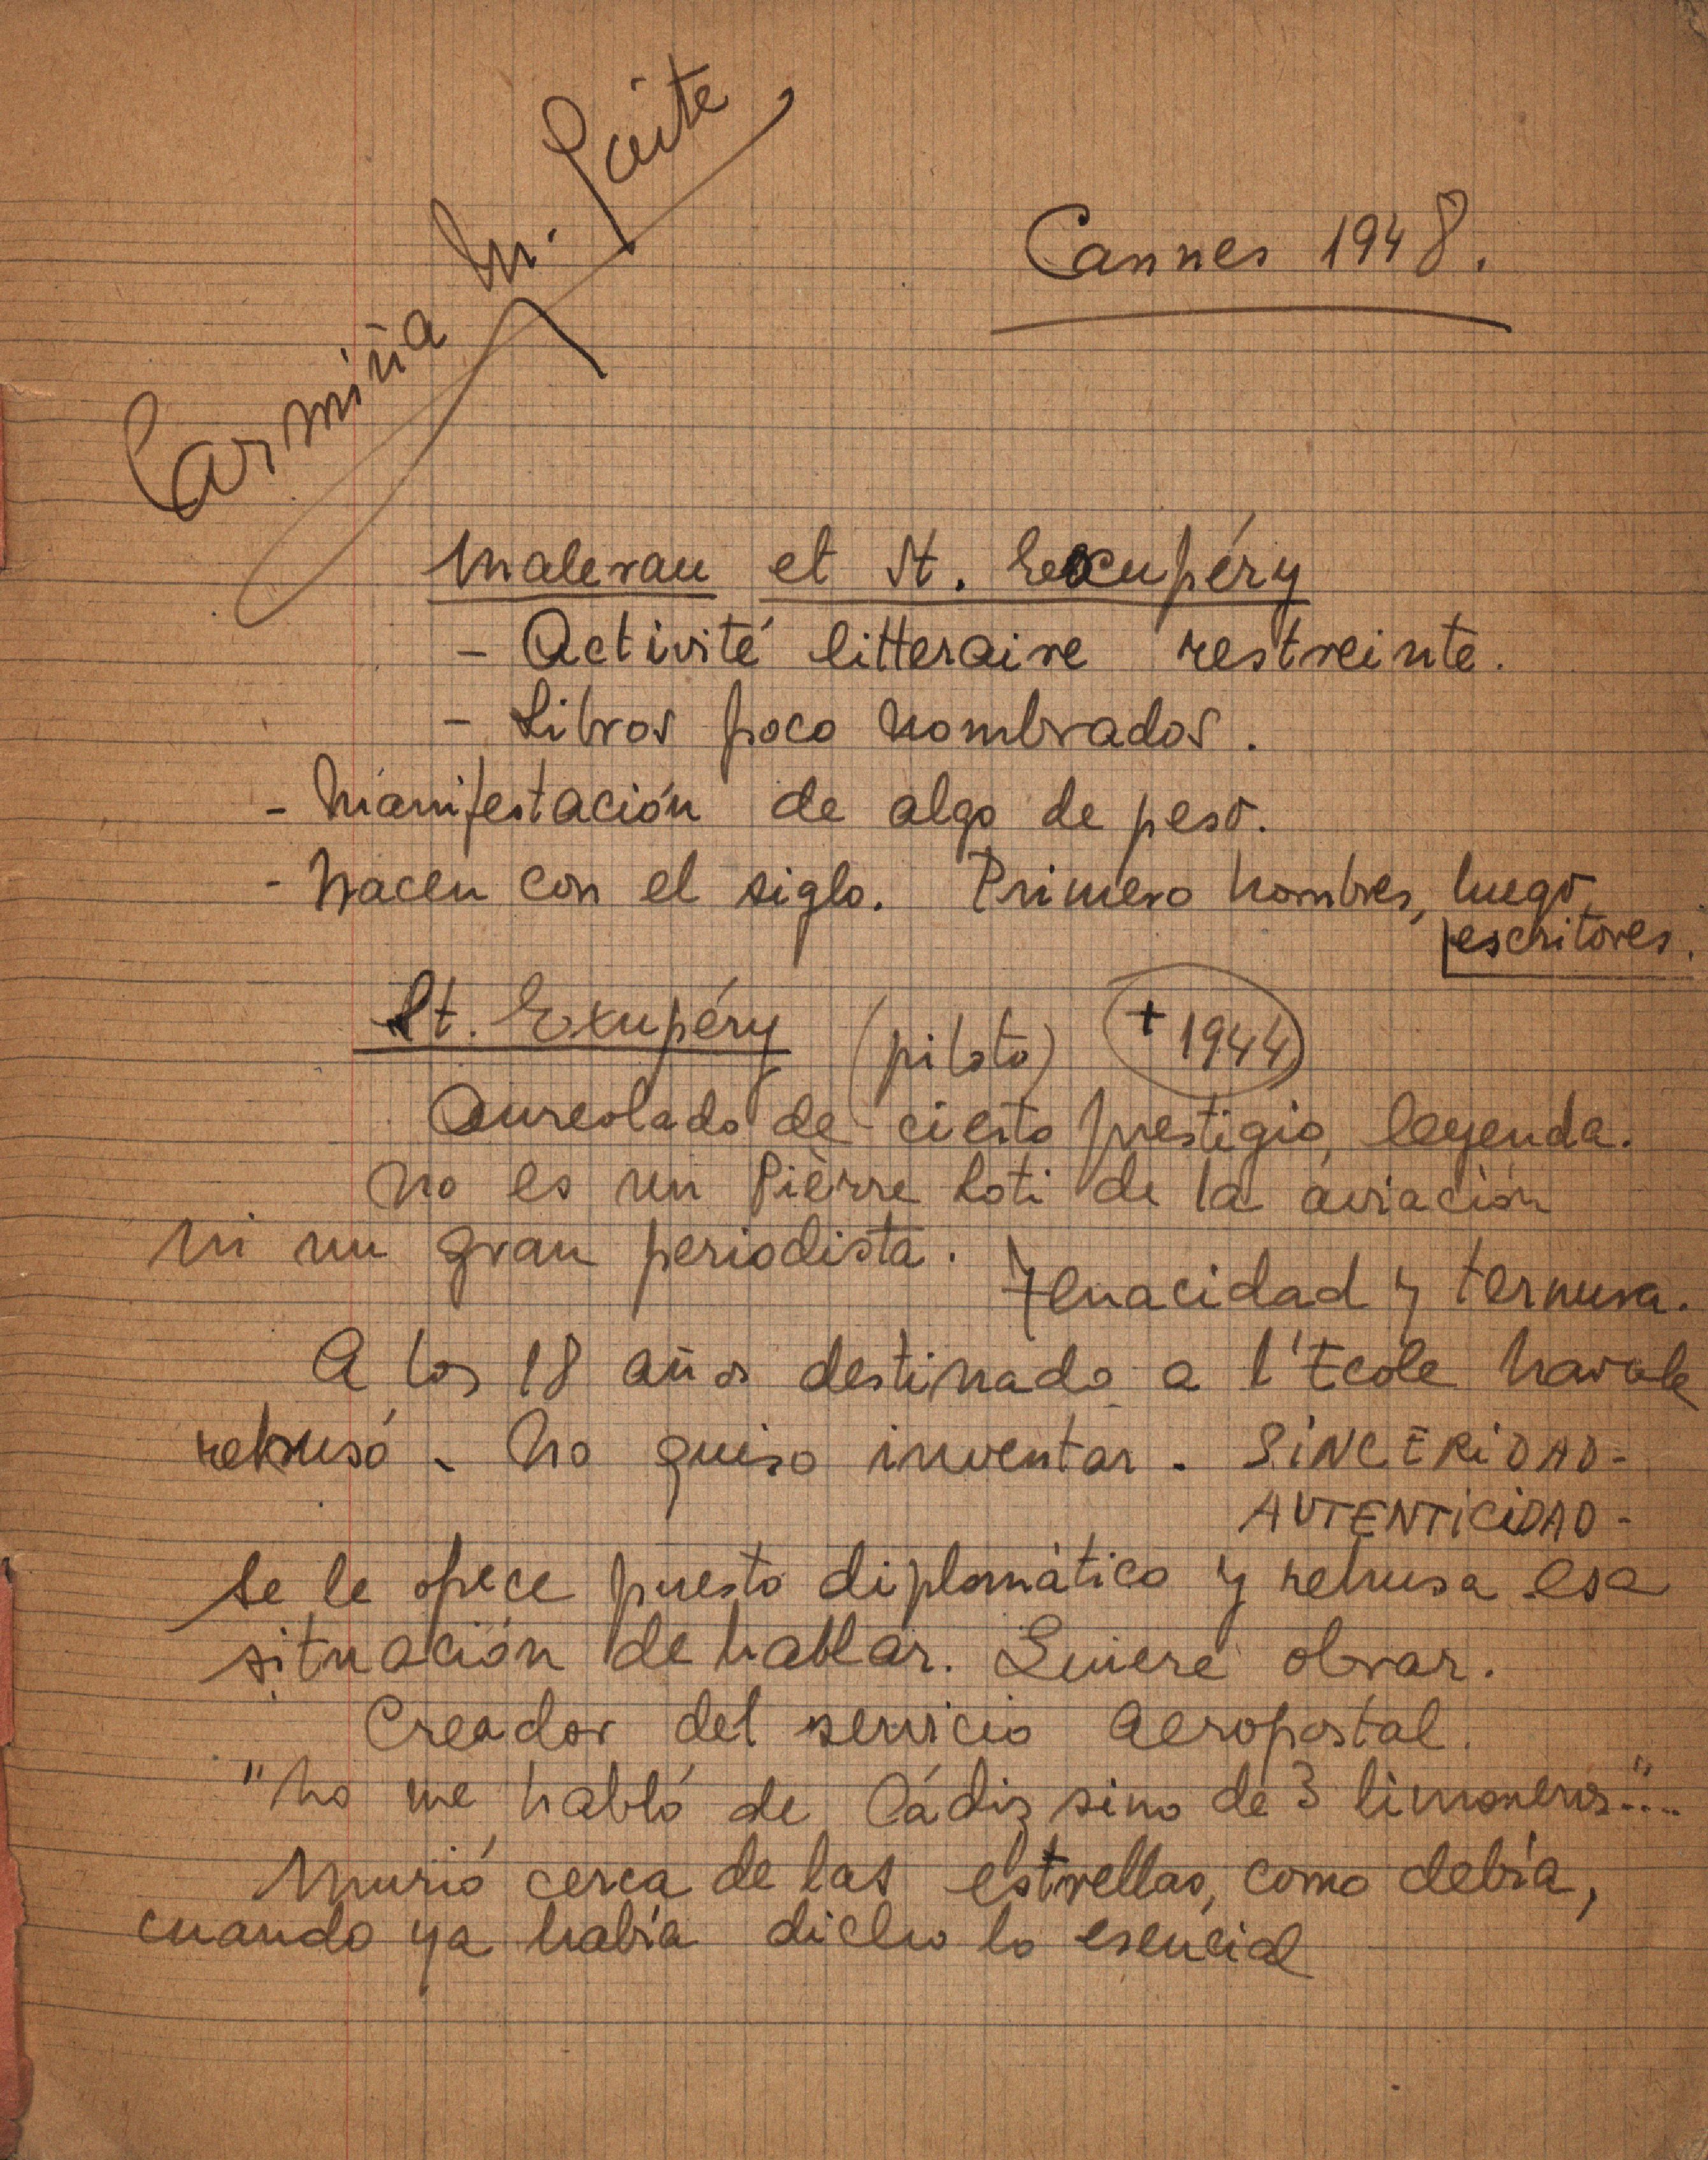 Carmiña M. Gaite
Cannes 1948.
Malerau et St. Exupéry
- Activité litteraire restreinte.
- Libros poco nombrados.
- Manifestación de algo de peso.
- Nacen con el siglo. Primero hombres, luego
escritores.
St. Exupéry (piloto) + 1944
Aureolado de cierto prestigio, leyenda.
No es un Pièrre Loti de la aviación
ni un gran periodista.
Tenacidad y ternura.
A los 18 años destinado a l'Ecole Navale
rehusó - No quiso inventar. SINCERIDAD-
AUTENTICIDAD-
Se le ofrece puesto diplomático y rehusa esa
situación de hablar. Quiere obrar.
Creador del servicio Aeropostal.
"No me habló de Cádiz sino de 3 limoneros"....
Murió cerca de las estrellas, como debía,
cuando ya había dicho lo esencial